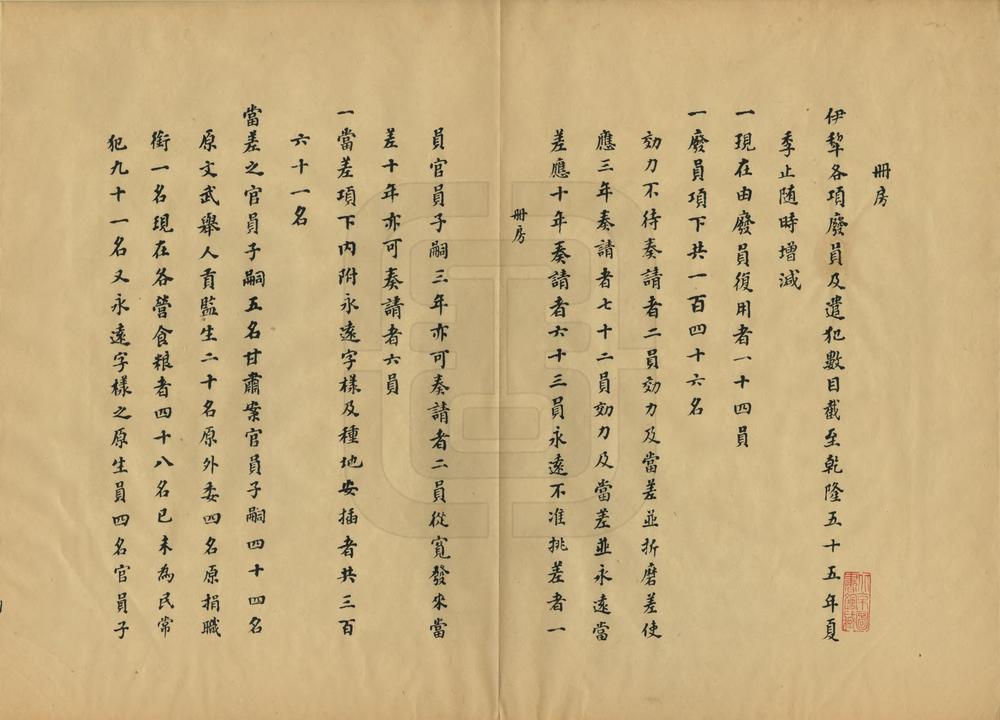 冊房
伊犂各項廢員及遣犯數目截至乾隆五十五年夏
季止随時增減
一現在由廢員復用者一十四員
一廢員項下共一百四十六名
効力不待奏請者二員効力及當差並折磨差使
應三年奏請者七十二員効力及當差並永遠當
差應十年奏請者六十三員永遠不准挑差者一
冊房
員官員子嗣三年亦可奏請者二員從寬發來當
差十年亦可奏請者六員
一當差項下內附永遠字樣及種地安插者共三百
六十一名
當差之官員子嗣五名甘肅案官員子嗣四十四名
原文武舉人貢監生二十名原外委四名原捐職
銜一名現在各營食粮者四十八名已未為民常
犯九十一名又永遠字樣之原生員四名官員子